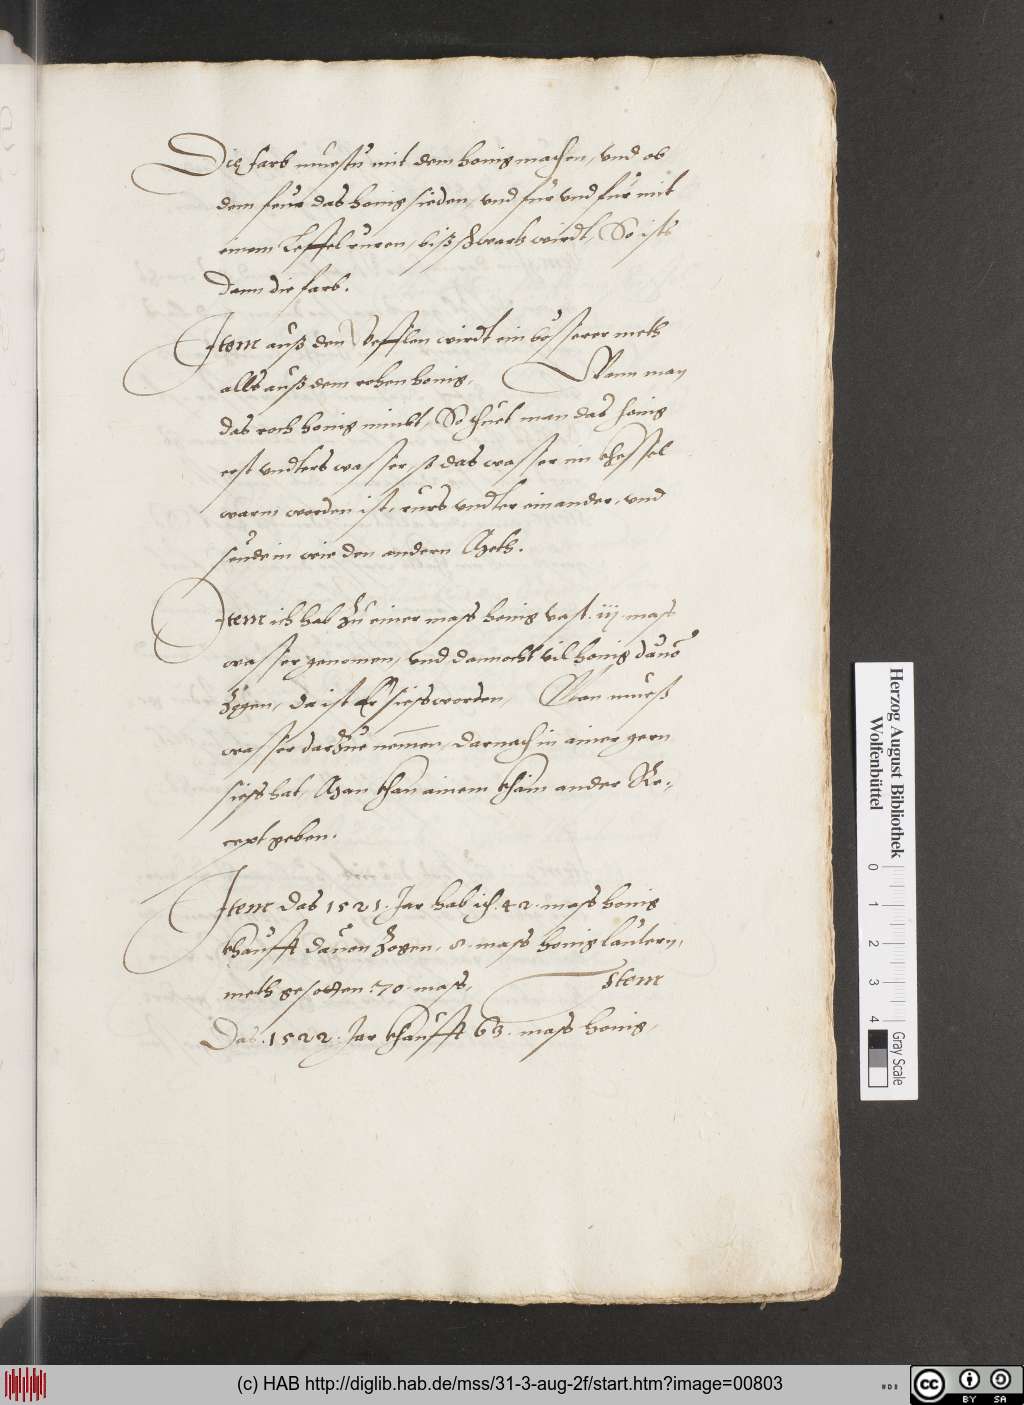 Die farb muestu mit dem honig machen, vnd ob
dem feur das honig sieden, vnd für vnd für mit
einem Leffel ruren, biß schwartz wirdt, So ists
dann die farb.
Item auß den Vefflen wirdt ein bösserer meth
alls auß dem rohen honig, Wenn man
das roch honig nimbt, So thuet man das honig
erst vndters wasser, so das wasser im khessel
warm worden ist, rurs vndter einander, vnd
seude in wie den andern Meth.
Item ich hab zu einer mass honig vast iij mass
wasser genomen, vnd dannocht vil honig dauo
zogen, da ist Er siess worden, Man muess
wasser darzue nemen, darnach in ainer gern
siess hat, Man khan ainem khain ander Re-
cept geben.
Item das 1521. Jar hab ich 42. mass honig
khaufft dauon zogen, 8. mass honig lautern,
meth gesotten 70 mass, Item
Das .1522. Jar khaufft 63. mass honig,
Herzog August Bibliothek
Wolfenbüttel
0 1 2 3 4
Gray Scale
(c) HAB http://diglib.hab.de/mss/31-3-aug-2f/start.htm?image=00803
cc BY SA